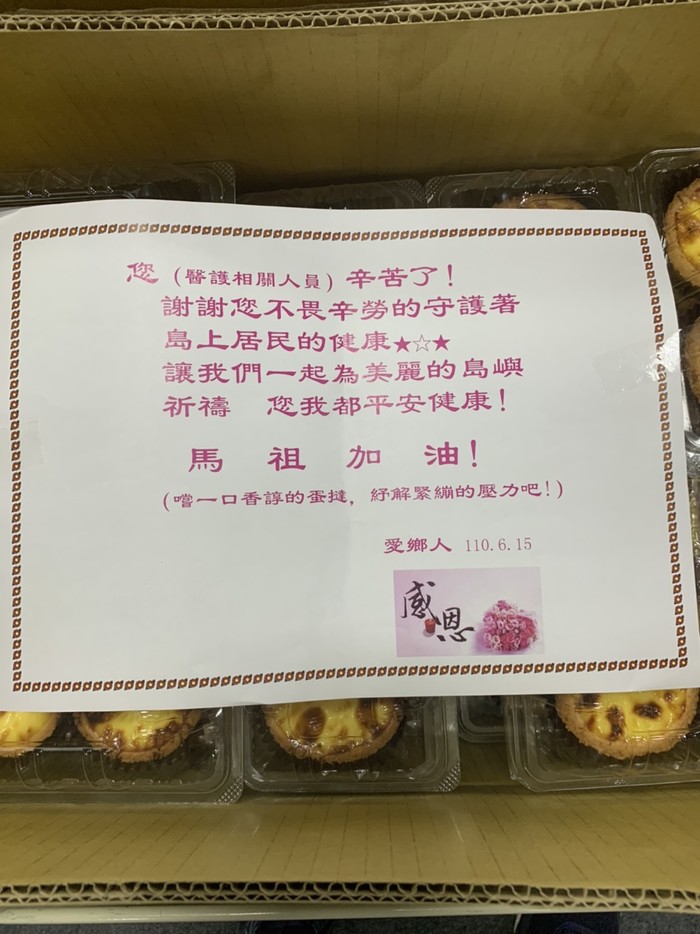 您（醫護相關人員）辛苦了！
謝謝您不畏辛勞的守護著
島上居民的健康★☆★
讓我們一起為美麗的島嶼
祈禱　您我都平安健康！
馬　祖　加　油！
（嚐一口香諄的蛋撻，紓解緊繃的壓力吧！）
愛鄉人 110.6.15
感恩